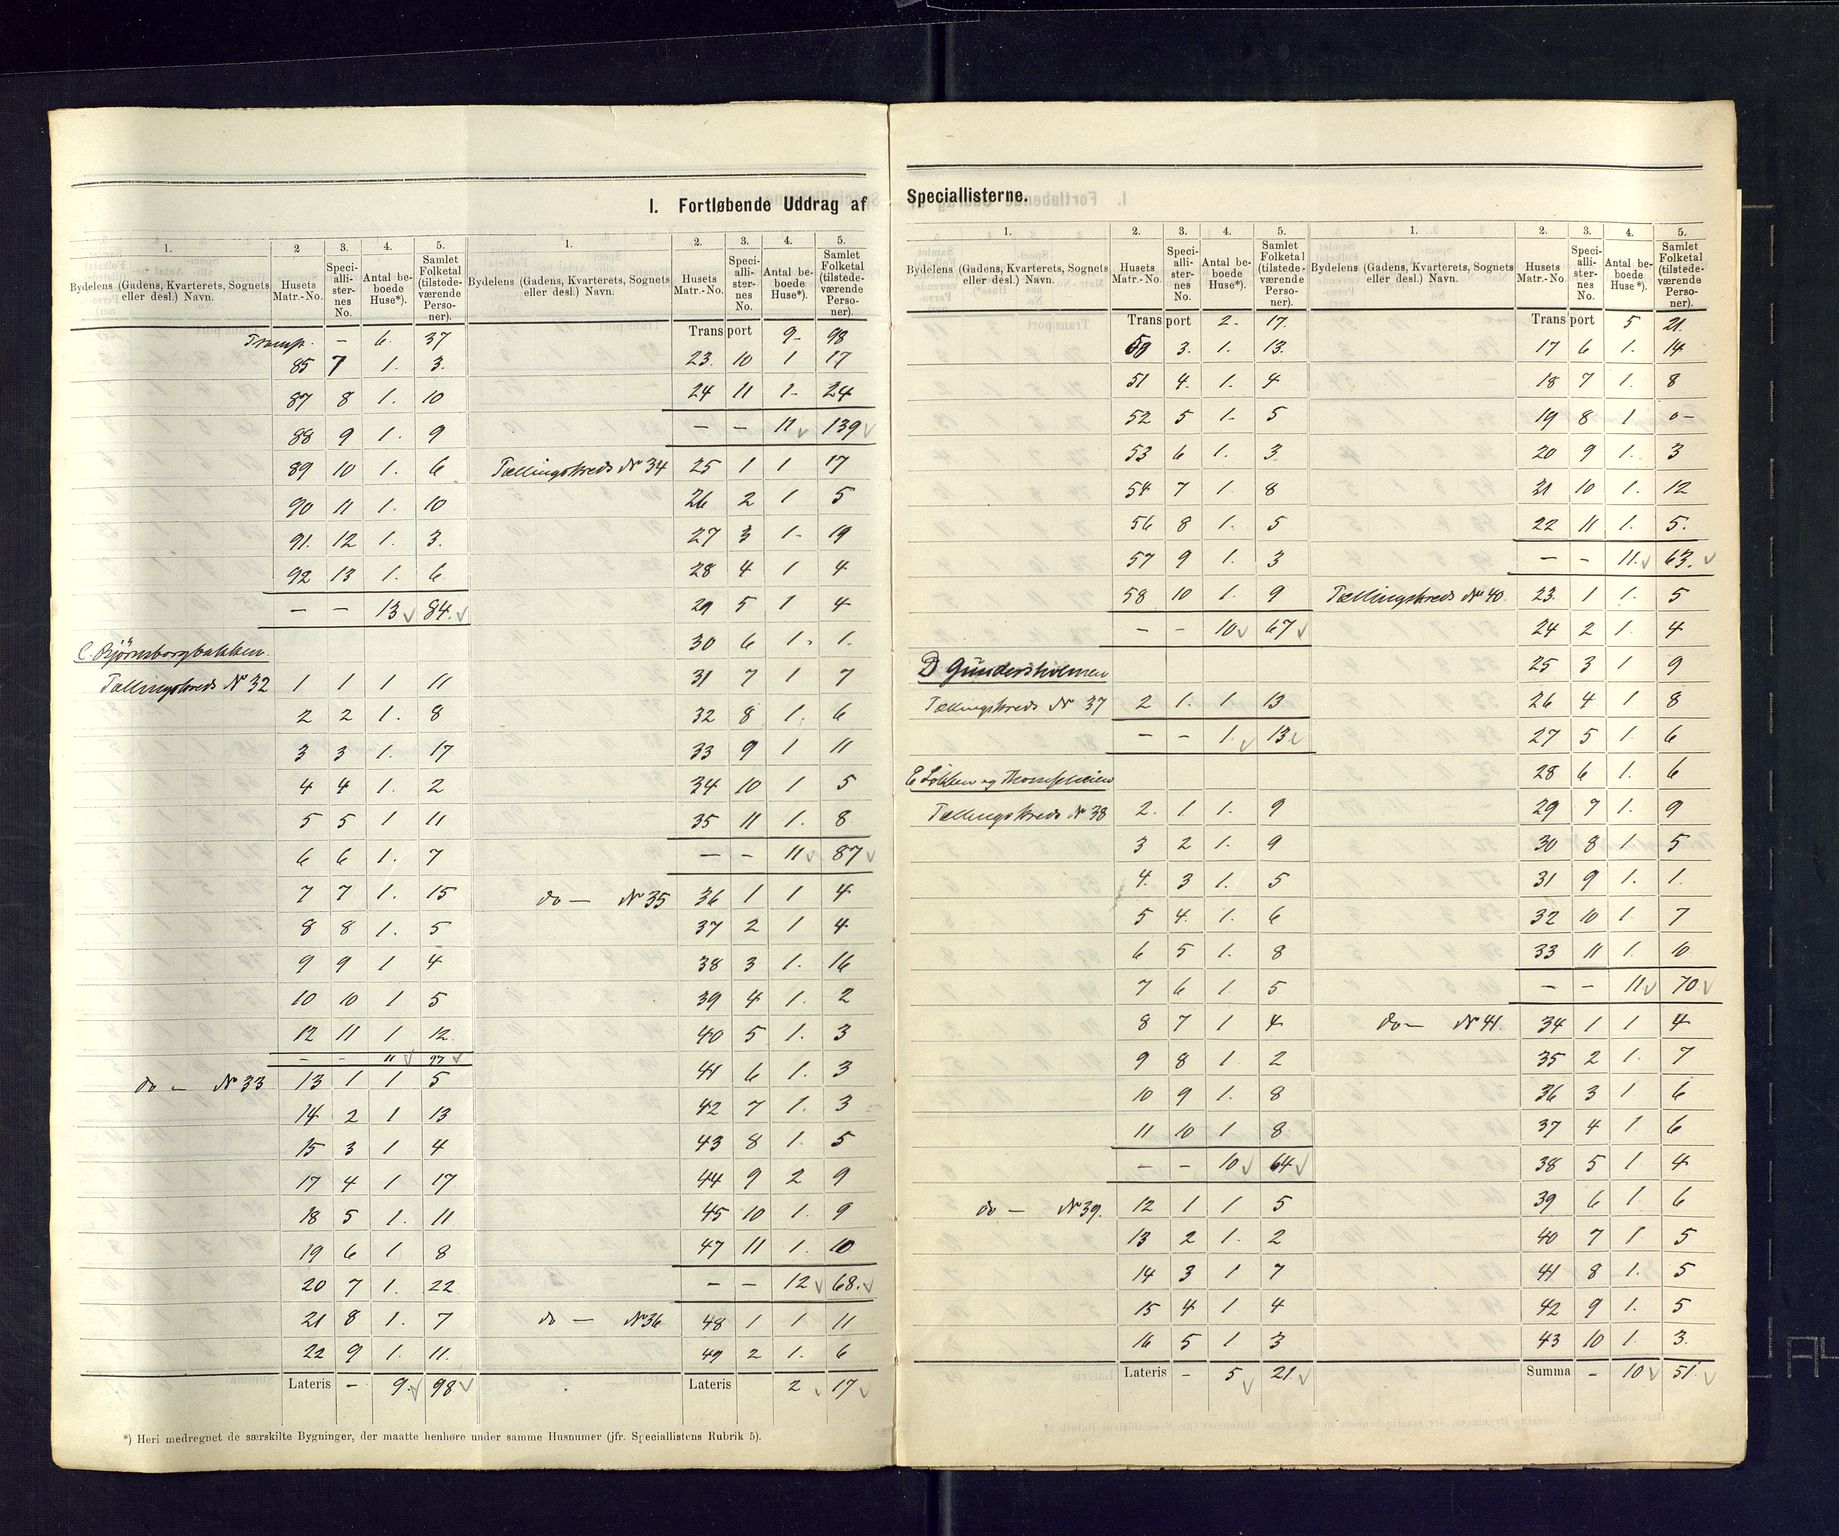 I. Fortløbende Uddrag af Speciallisterne.
1. 2 3. 4. 5.
Bydelens (Gadens, Kvarterets, Sognets eller desl.) Navn. Husets Matr.-No. Speciallisternes No. Antal beboede Huse*). Samlet Folketal (tilstedeværende Personer).
Transp. – 6. 37
85 7 1. 3.
87 8 1. 10
88 9 1. 9
89 10 1. 6
90 11 1. 10
91. 12 1. 3.
92 13 1. 6
– – 13 84.
C. Bjørnsborgbakken.
Tællingskreds No 32 1 1 1 11
2 2 1. 8
3 3 1. 17
4 4 1. 2
5 5 1 11
6 6 1. 7
7 7 1. 15
8 8 1. 5
9 9 1 4
10 10 1 5
12 11 1 12.
– – 11 97
do – No 33 13 1 1 5
14 2 1 13
15 3 1 4
17 4 1 17
18 5 1. 11
19 6 1 8
20 7 1. 22
21 8 1. 7
22 9 1. 11.
Lateris – 9. 98
*) Heri medregnet de særskilte Bygninger, der maatte henhøre under samme Husnumer (jfr. Speciallistens Rubrik 5).
1. 2. 3. 4. 5.
Bydelens (Gadens, Kvarterets, Sognets eller desl.) Navn. Husets Matr.-No. Speciallisternes No. Antal beboede Huse*). Samlet Folketal (tilstedeværende Personer).
Transport 9– 98
23. 10 1 17
24 11 1– 24
– – 11 139
Tællingskreds No 34 25 1 1 17
26 2 1 5
27 3 1– 19
28 4 1 4
29 5 1 4
30 6 1. 1.
31 7 1 7
32 8 1. 6
33 9 1 11
34 10 1 5
35 11 1. 8
– – 11 87
do – No 35 36 1 1 4
37 2 1 4
38 3 1. 16
39 4 1. 2
40 5 1. 3
41 6 1. 3
42 7 1. 3
43 8 1. 5
44 9 2 9
45 10 1. 9
47 11 1. 10
– – 12 68.
do – No 36 48 1 1 11
49 2 1. 6
Lateris 2 17
1. 2. 3. 4. 5.
Bydelens (Gadens, Kvarterets, Sognets eller desl.) Navn. Husets Matr.-No. Speciallisternes No. Antal beboede Huse*). Samlet Folketal (tilstedeværende Personer).
Transport 2. 17.
50 3. 1. 13.
51 4. 1. 4
52 5 1– 5
53 6 1. 3.
54 7 1. 8
56 8 1. 5
57 9 1. 3
58 10 1. 9
– – 10 67
D Gundersholmen
Tællingskreds No 37 2 1. 1 13
– – 1. 13
E Løkken og Thomesheien
Tællingskreds No 38 2. 1 1. 9
3 2 1. 9
4. 3 1. 5
5 4. 1. 6
6 5 1. 8
7 6 1. 5
8 7 1 4
9 8 1. 2
10 9 1. 8
11 10 1 8
– – 10 64
do – No 39. 12 1 1 5
13 2 1. 2
14 3 1 7
15 4 1 4
16 5 1. 3
Lateris – 5 21.
1. 2. 3. 4. 5.
Bydelens (Gadens, Kvarterets, Sognets eller desl.) Navn. Husets Matr.-No. Speciallisternes No. Antal beboede Huse*). Samlet Folketal (tilstedeværende Personer).
Transport 5 21.
17 6 1. 14
18 7 1. 8
19 8 1 0–
20 9 1. 3
21 10 1. 12
22 11 1. 5.
– – 11. 63.
Tællingskreds No 40. 23. 1 1. 5
24 2 1. 4
25 3 1 9
26 4 1 8
27 5 1. 6
28 6 1. 6
29 7 1. 9
30 8 1. 5
31 9 1. 1.
32 10 1. 7
33 11 1. 10
– – 11 70.
do – No 41. 34 1 1 4
35 2 1. 7
36 3 1. 6
37 4 1 6
38 5 1 4
39 6 1. 6
40 7 1 5
41 8 1. 5
42 9 1. 5
43 10 1. 3.
Summa – 10 51.